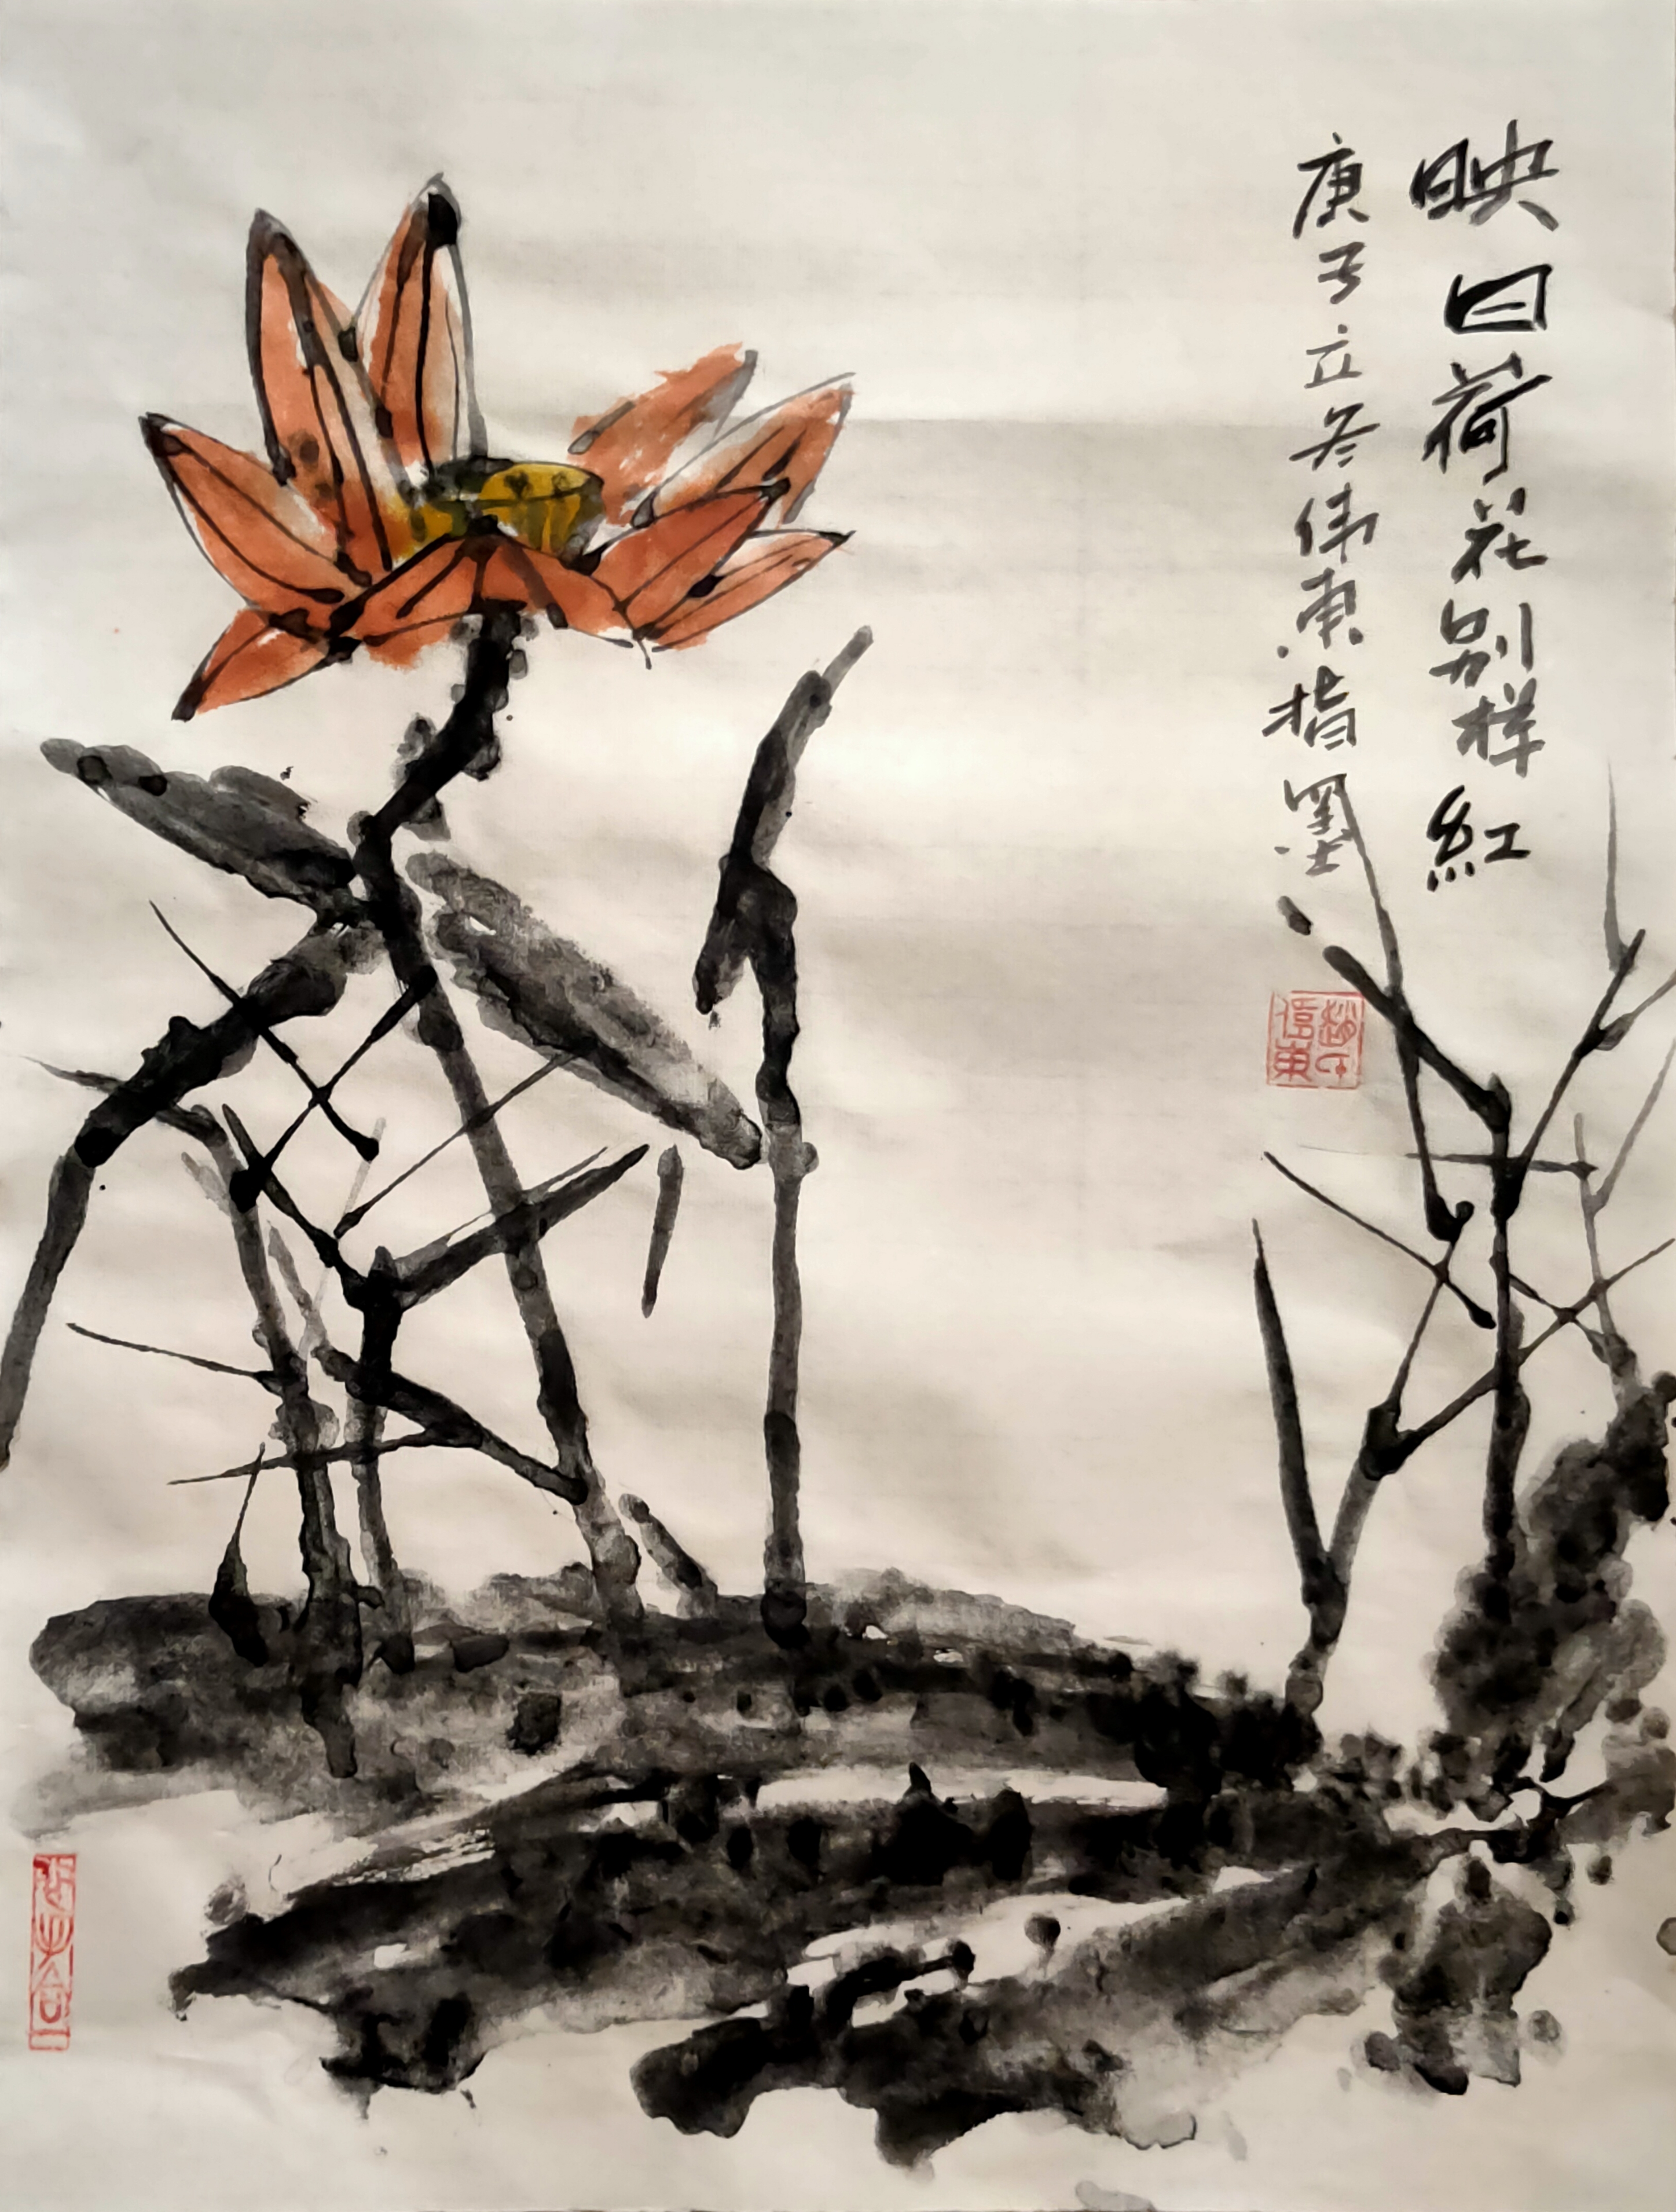 映日荷花别样紅
庚子立冬伟東指墨